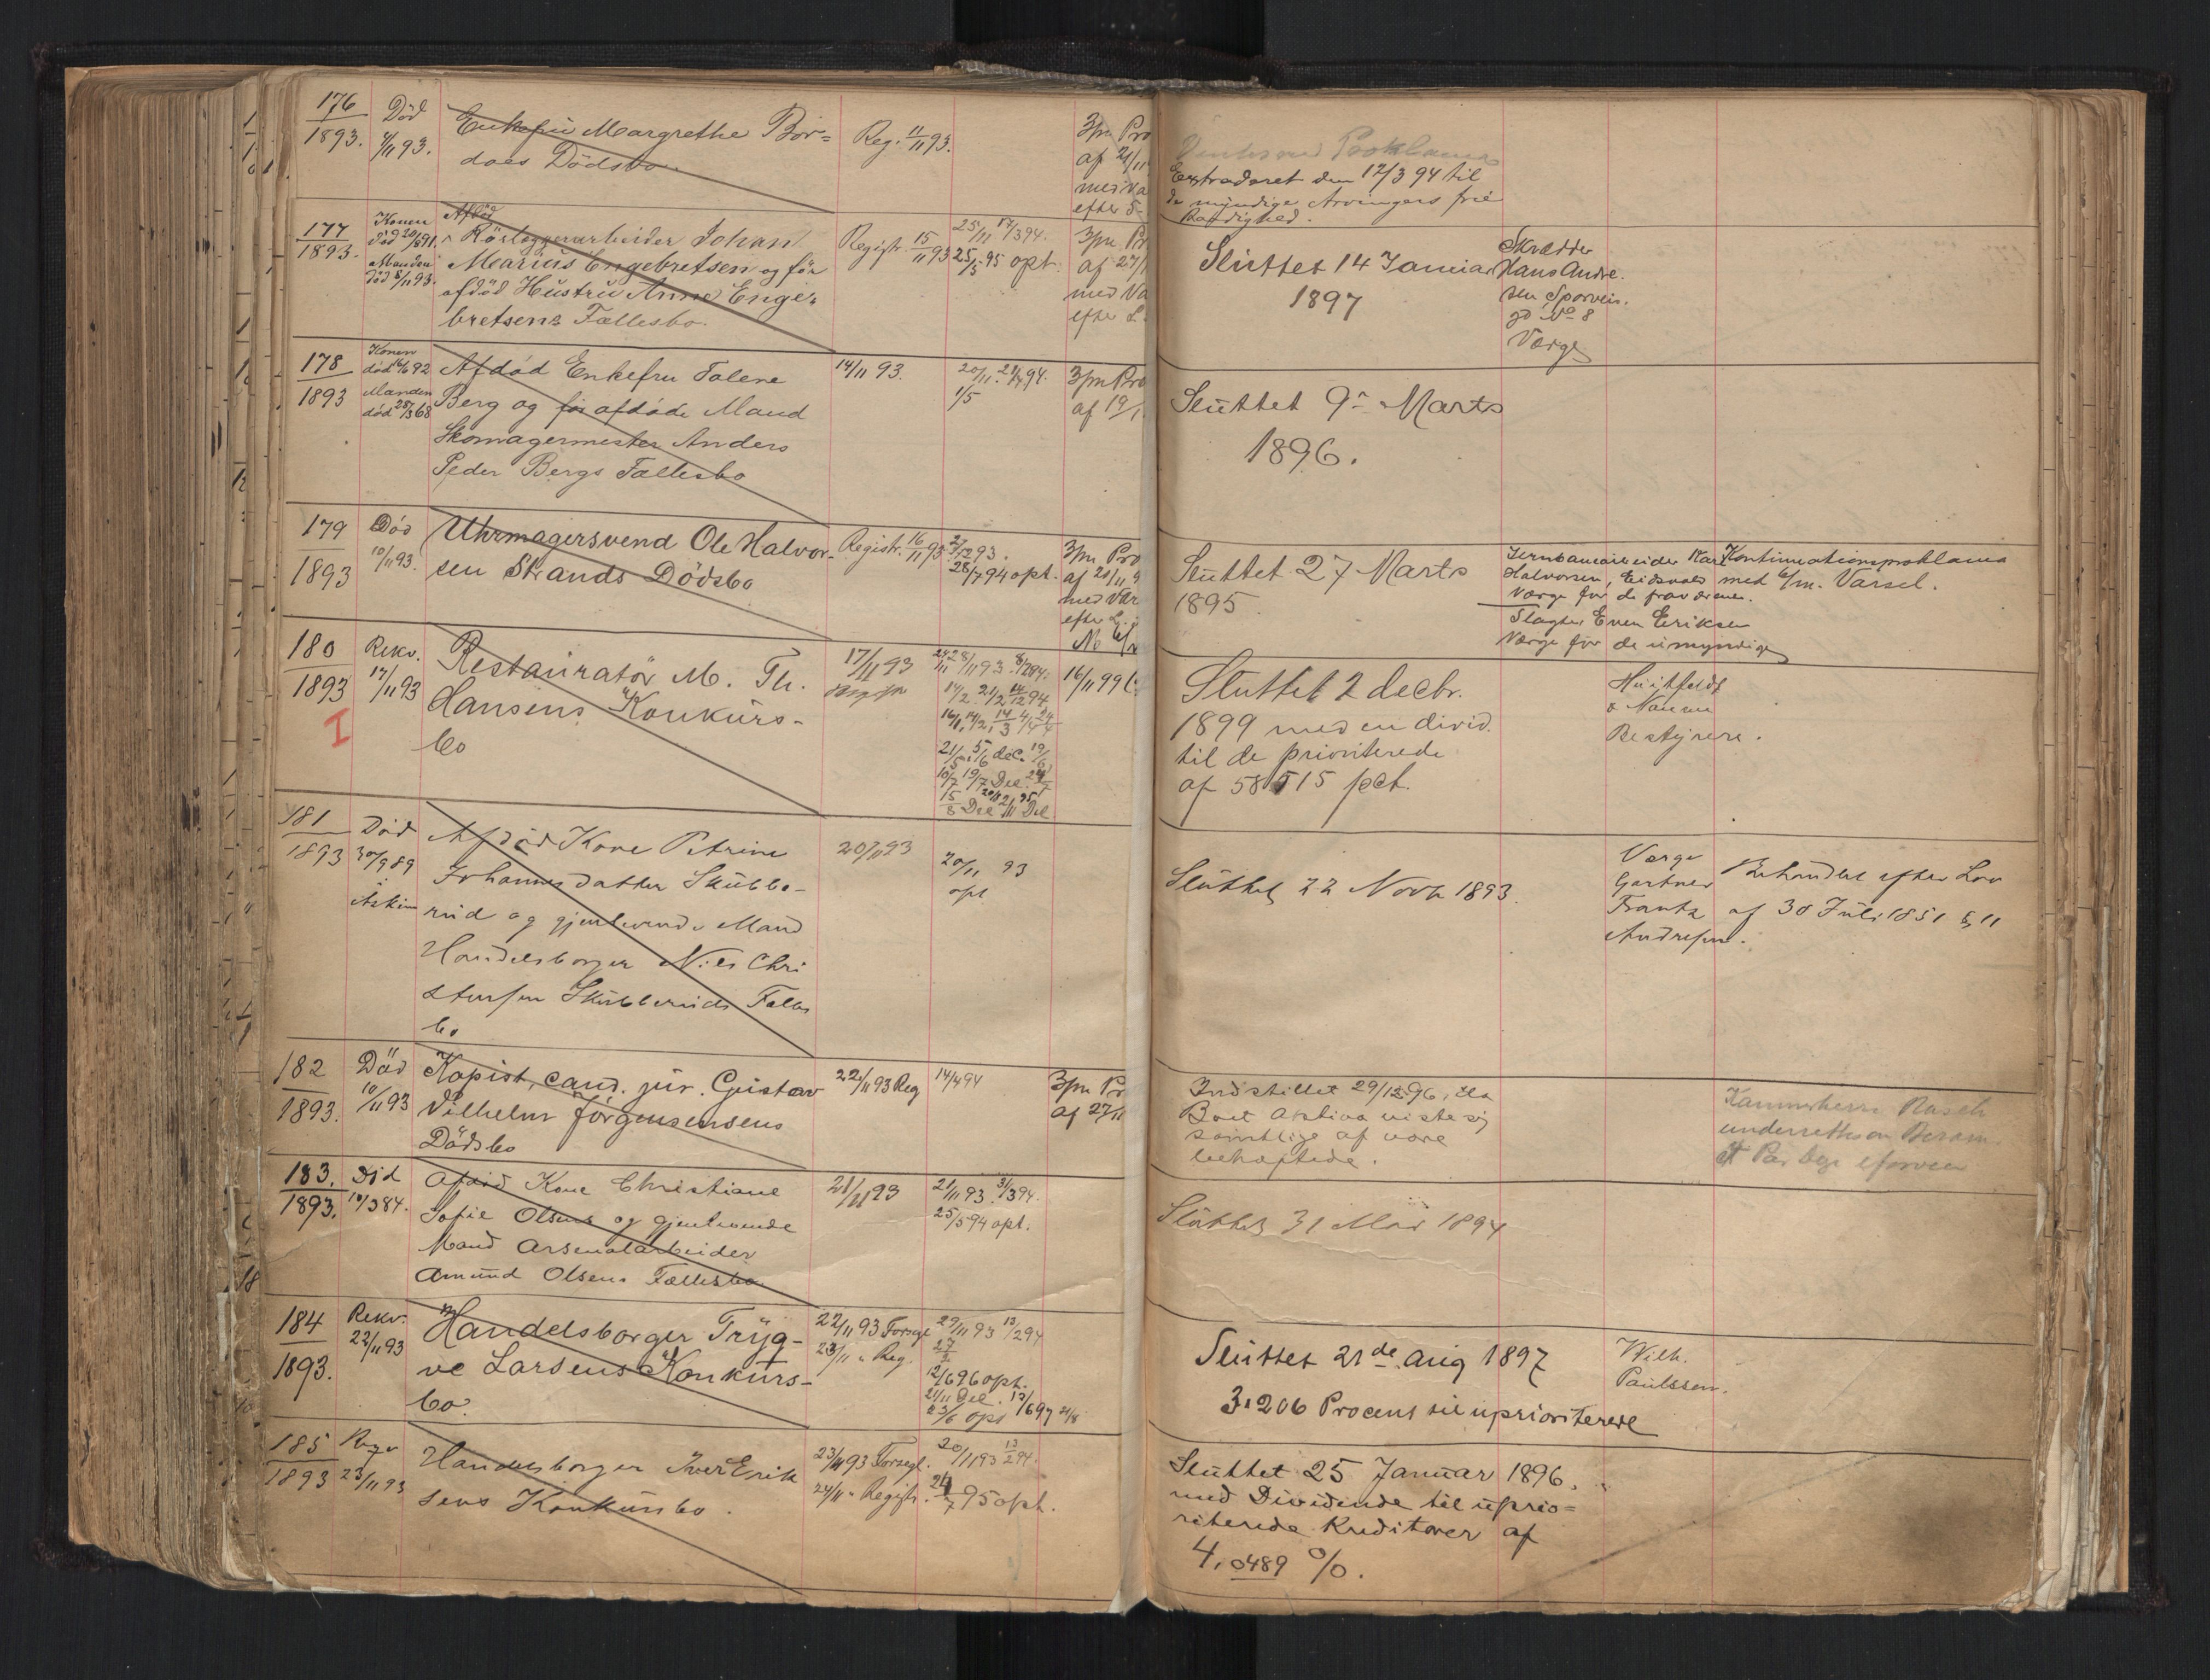 176
1893.
Död
4/11 93.
Enkefru Margrethe Bor=
daes Dödsbo.
Reg. 11/11 93.
3m Pro
af 21/11
med Va
efter 5-
Proklama
Extraderet den 12/3 94 til
de myndige Arvingers frie
Raadighed.
177
1893.
Konen
död 20/8 91.
Manden
död 8/11 93.
Afdöd
Rörlæggerarbeider Johan
Marius Engebretsen og för
afdöd Hustru Anne Enge=
bretsens Fællesbo.
Registr. 15/11 93
25/11 17/3 94.
25/5 95 opt.
3m Pr
af 27/1
med Va
efter L.
Sluttet 14 Januar
1897
Skrædder
Hans Andre-
sen Sporvein.
gd No 8
Værge
178
1893
Konen
död 16/6 92
Manden
död 28/3 68
Afdöd Enkefru Talene
Berg og för afdöde Mand
Skomagermester Anders
Peder Bergs Fællesbo
14/11 93.
20/11. 21/4 94.
1/5
3m Pro
af 19/1
Sluttet 9. Marts
1896.
179
1893
Död
10/11 93.
Uhrmagersvend Ole Halvor-
sen Strands Dödsbo
Registr. 16/11 93
28/7 94 opt.
3m Pro
af 20/11 9
med Var
efter L.
Sluttet 27 Marts
1895.
Jernbanearbeider Karl
Halvorsen, Eidsvold
Værge for de fraværende.
Slagter Even Eriksen
Værge for de umyndige
Kontinuationsproklama
med 6/m. Varsel.
180
1893
I
Rekv.
17/11 93
Restauratör M. Th.
Hansens Konkurs-
bo
17/11 93
16/11 99
Sluttet 2 decbr.
1899 med en divid.
til de prioriterede
af 58515 pct.
Huitfeldt
& Nanne
Bestyrere.
181
1893
Död
30/9 89
i
Askim
Afdöd Kone Petrine
Johannesdatter Skubbe-
rud og gjenlevende Mand
Handelsborger Nils Chri
stensen Skubberuds Fælles
bo
20/11 93
20/11 93
opt
Sluttet 22 Novbr 1893.
Værge
Gartner
Frantz
Andresen.
Behandlet efter Lov
af 30 Juli 1851 § 11
182
1893.
Död
10/11 93
Kopist, cand. jur. Gustav
Vilhelm Jörgensensens
Dödsbo
22/11 93 Reg
14/4 94
3m Pr
af 27/11
Indstillet 29/12 96, da
Boet Aktiva viste sig
samtlige af være
behæftede.
Kammerherre Rasch
underrettes om Beram
et Par Dage
183.
1893.
Död
10/3 84.
Afdöd Kone Christiane
Sofie Olsens og gjenlevende
Mand Arsenalarbeider
Amund Olsens Fællesbo
21/11 93
21/11 93. 31/3 94.
25/5 94 opt.
Sluttet 31 Mai 1894
184
1893.
Rekv.
22/11 93
Handelsborger Tryg-
ve Larsens Konkurs-
bo.
22/11 93 Forsegl
23/11 " Reg.
29/11 93 13/2 94
27/2
12/6 96 opt.
21/11 Del. 12/6 97 21/8
23/6 opt
Sluttet 21de Aug 1897
3.206 Procent til uprioriterede
Wilh.
Paulssen.
185
1893
Rekv
23/11 93
Handelsborger Iver Erik
sens Konkursbo.
23/11 93 Forsegl.
24/11 " Registr.
20/11 93 13/2 94.
24/7 95 opt.
Sluttet 25 Januar 1896.
med Dividende til uprio=
riterede Kreditorer af
4,0489 %.